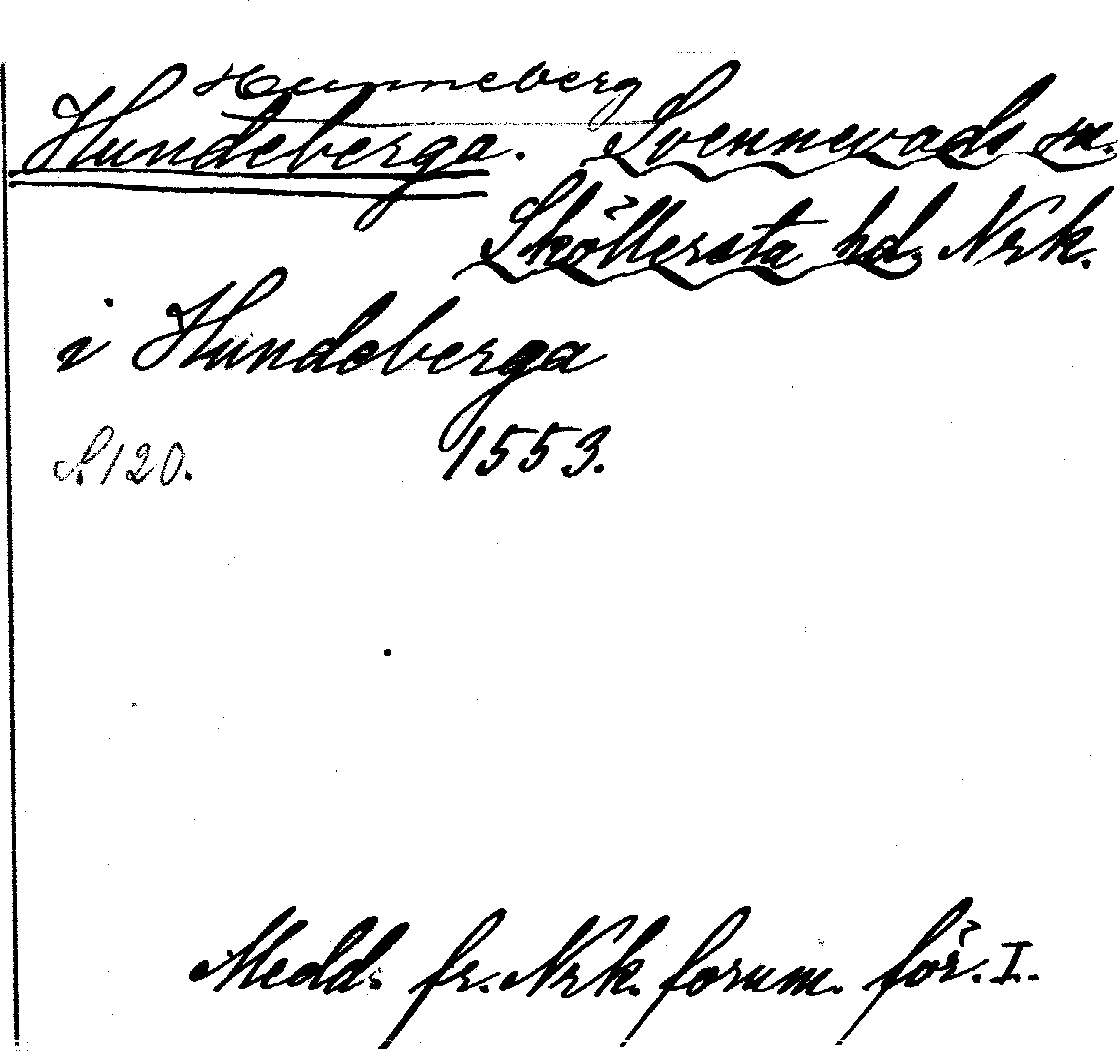 Hunneberg
Hundeberga. Svennevads sn.
Sköllersta hd. Nrk.
i Hundeberga
S. 120. 1553.
Medd. fr. Nrk. fornm. för. I.